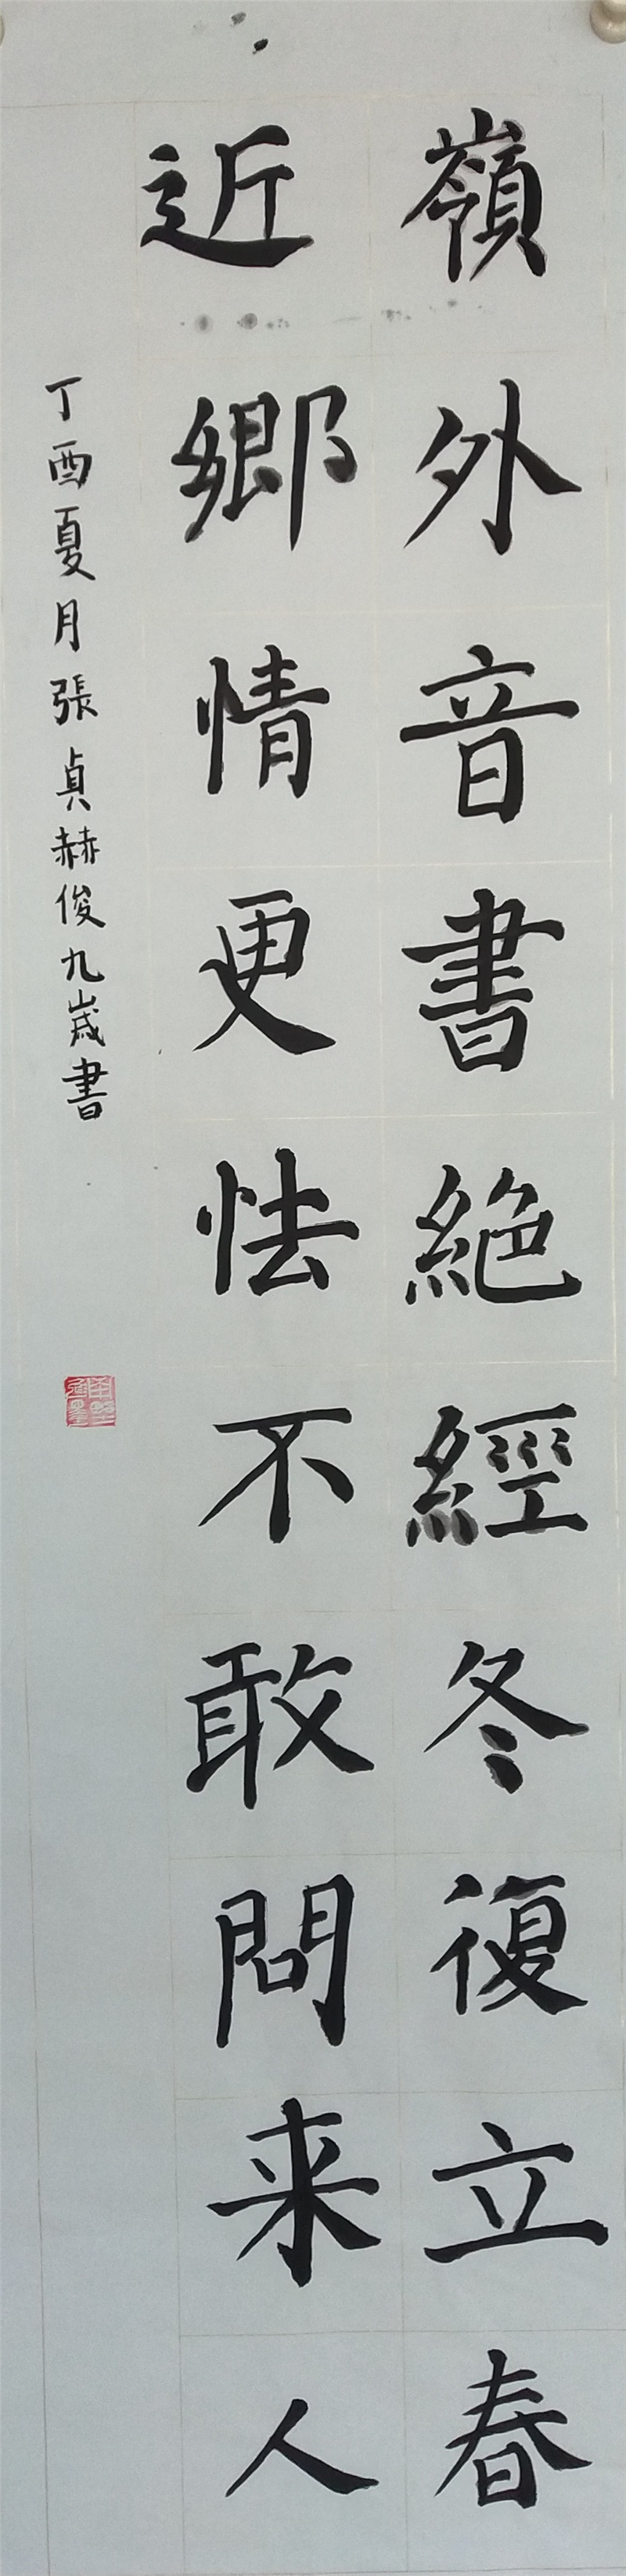 嶺外音書絶經冬復立春
近鄉情更怯不敢問来人
丁酉夏月張貞赫俊九歲書